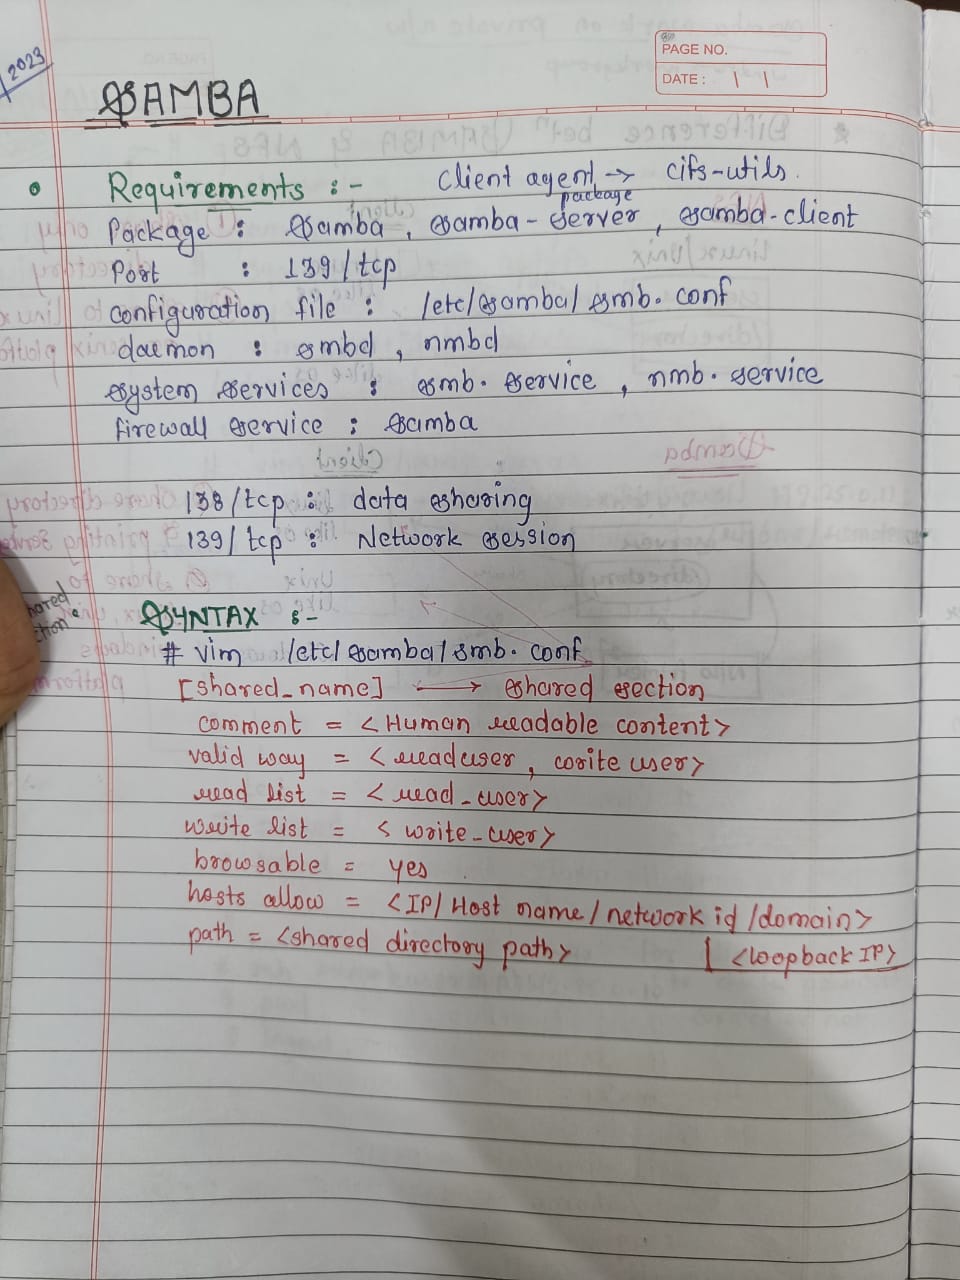 2023
PAGE NO.
DATE: / /
SAMBA
• Requirements :- Client agent → cifs-utils.
package
Package : Samba, samba-server, samba-client
Port : 139/tcp
configuration file : /etc/samba/smb.conf
daemon : smbd, nmbd
system services : smb.service, nmb.service
firewall service : samba
138/tcp : data sharing
139/tcp : Network session
SYNTAX :-
# vim /etc/samba/smb.conf
[shared_name] ⟷ shared section
comment = <Human readable content>
valid way = <read user, write user>
read list = <read_user>
write list = <write_user>
browsable = yes.
hosts allow = <IP/Host name/network id/domain>
path = <shared directory path> | <loopback IP>